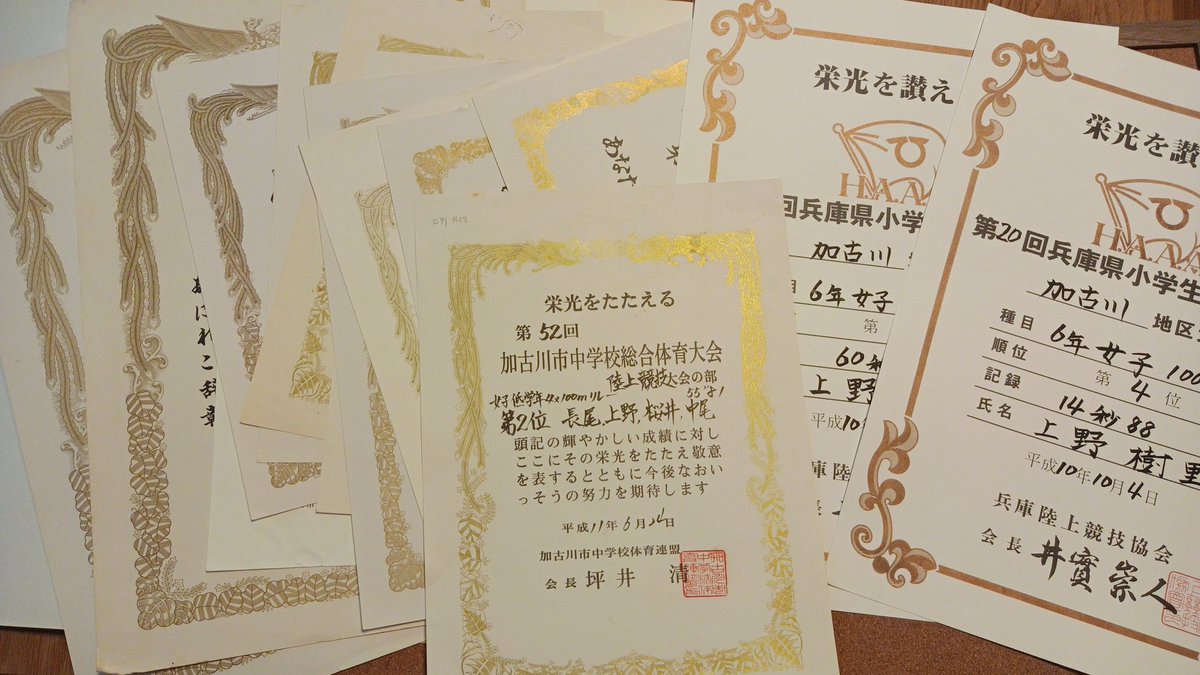 栄光をたたえる
第52回
加古川市中学校総合体育大会
陸上競技大会の部
女子低学年4×100mリレー 55"81
第2位 長尾、上野、桜井、中尾
頭記の輝やかしい成績に対し
ここにその栄光をたたえ敬意
を表するとともに今後なおい
っそうの努力を期待します
平成11年6月24日
加古川市中学校体育連盟
会長 坪井 清
あなた
栄光を讃え
H.A.A.
回兵庫県小学
加古川
6年女子
第
60
上野
平成10
庫陸
栄光を讃
H.A.A.
第20回兵庫県小学生
加古川 地区
種目 6年女子 100
順位 第4位
記録 14秒88
氏名 上野樹里
平成10年10月4日
兵庫陸上競技協会
会長 井實崇人